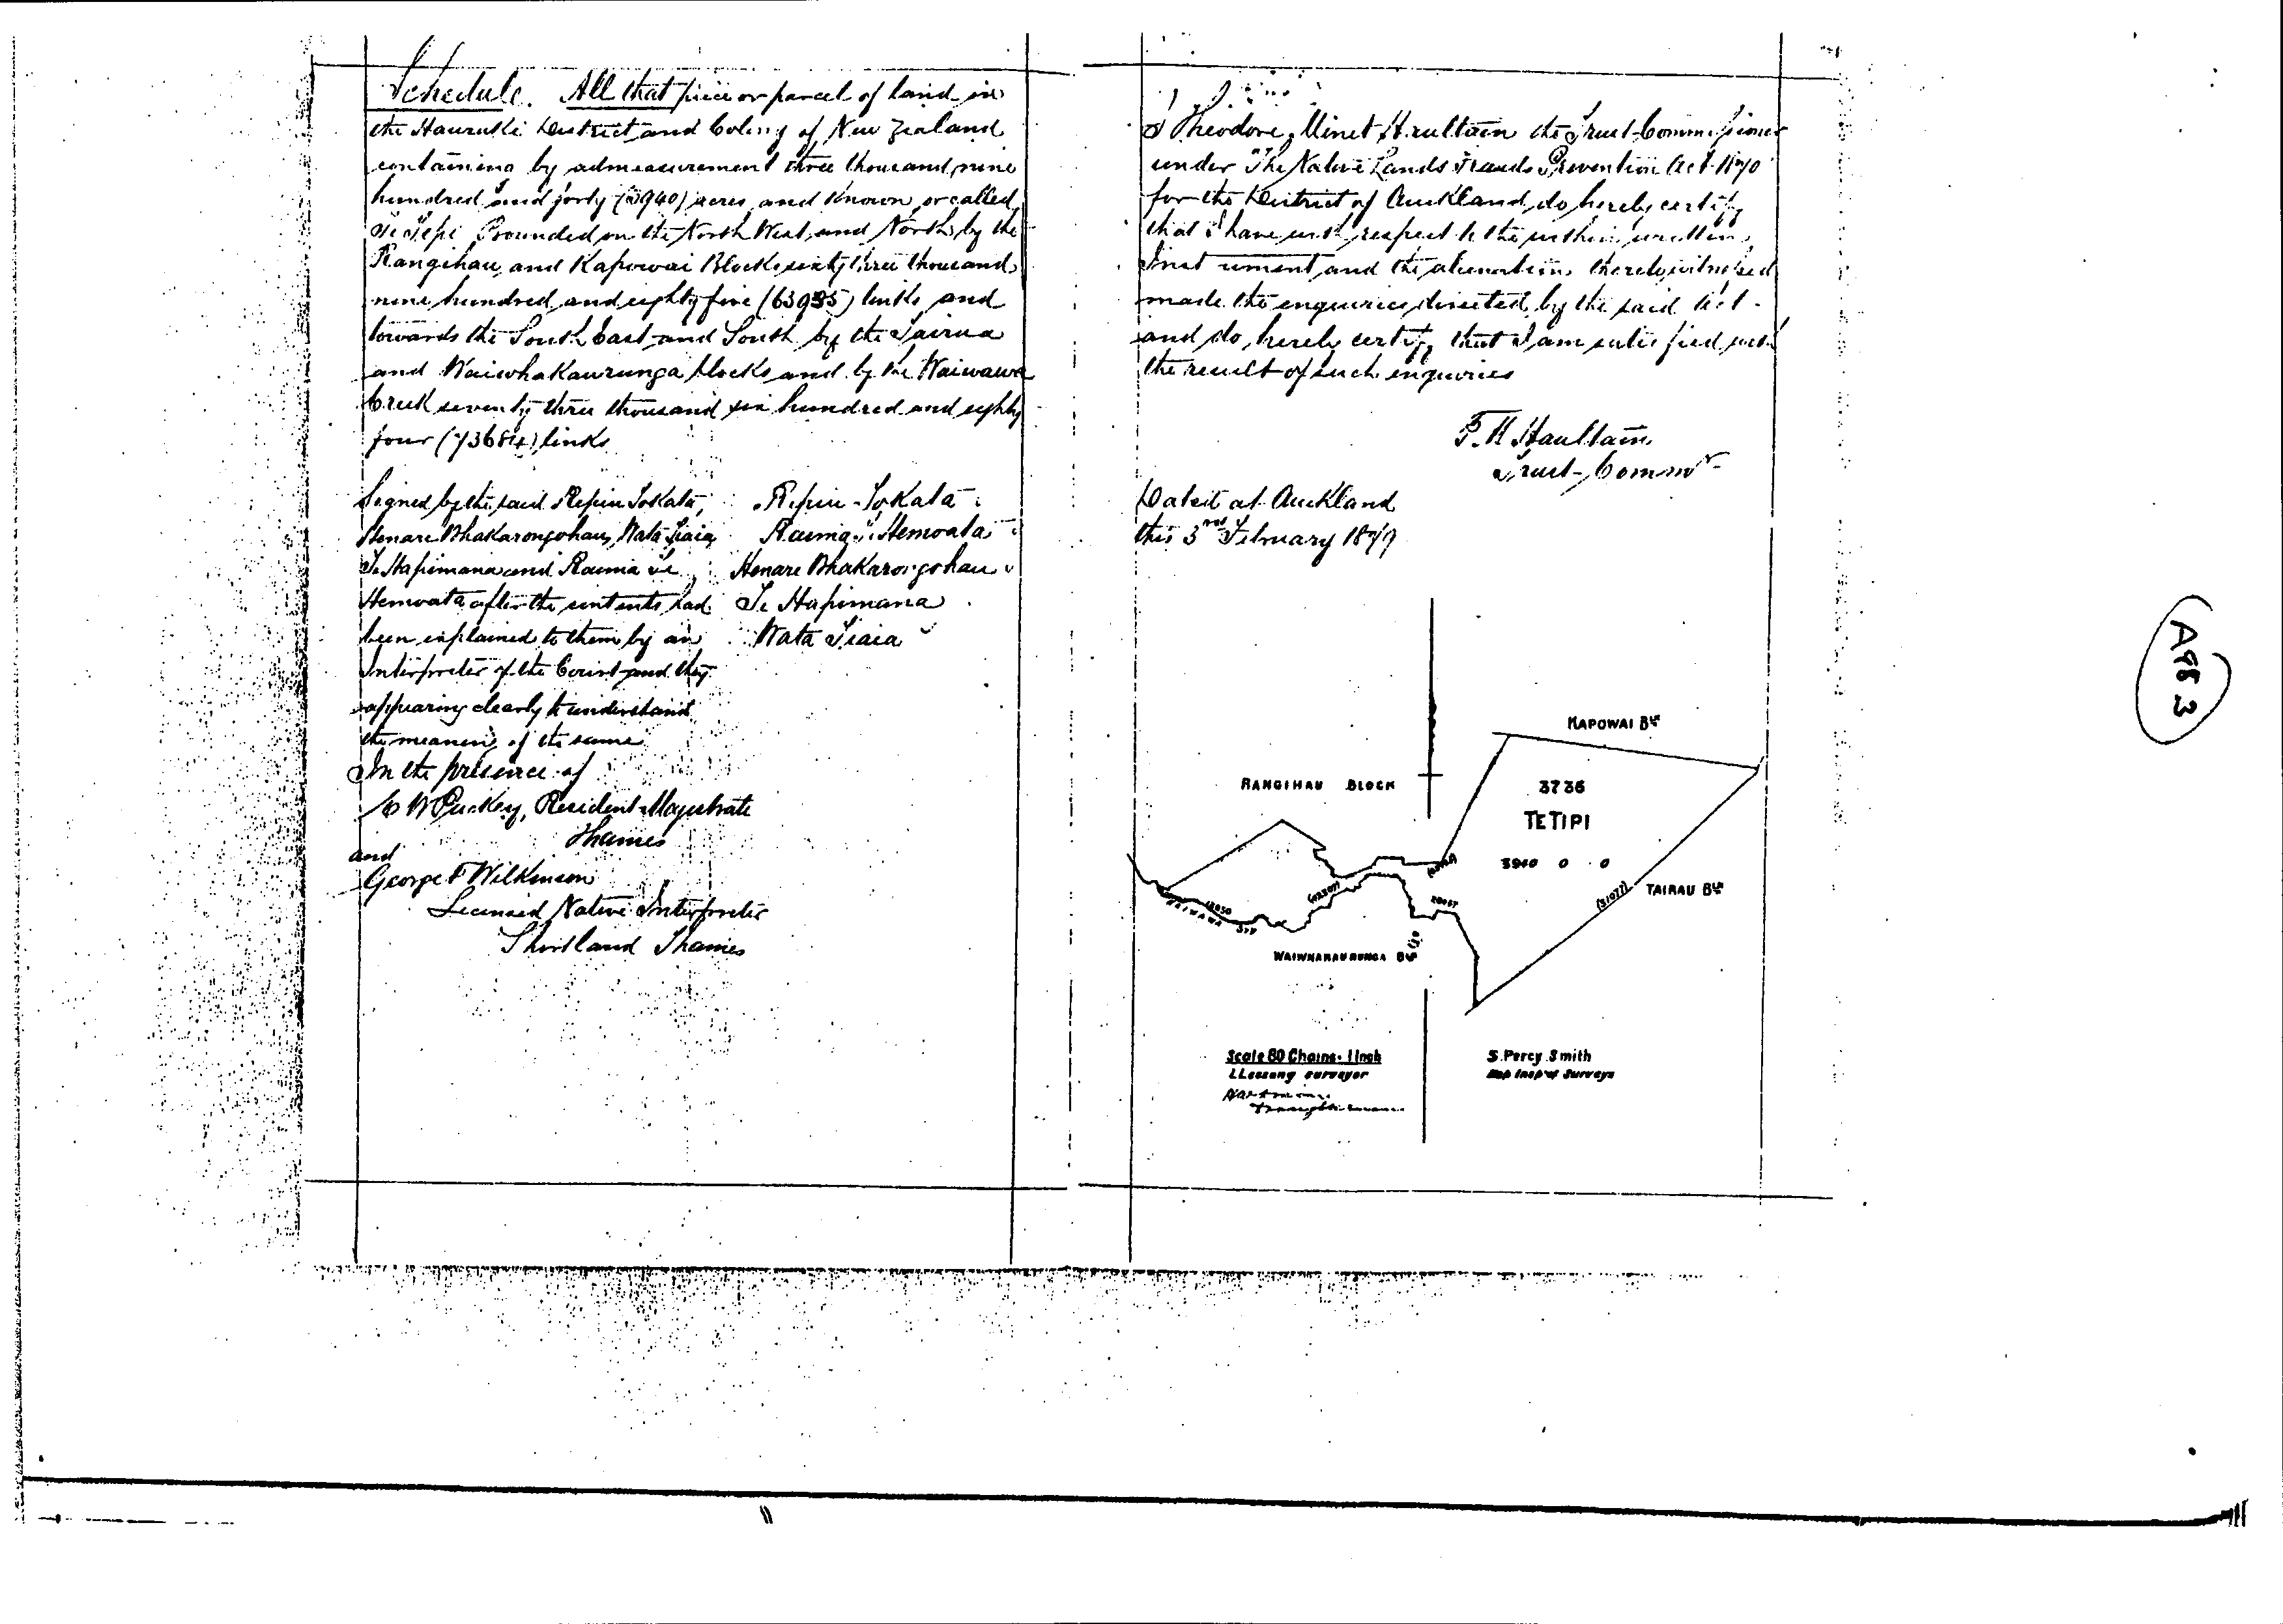 Schedule. All that piece or parcel of land in
the Hauraki District and Colony of New Zealand
containing by admeasurement three thousand nine
hundred and forty (3940) acres and known or called
Te Tipi Bounded on the North West and North by the
Rangihau and Kapowai Blocks sixty three thousand
nine hundred and eighty five (63985) links and
towards the South East and South by the Tairua
and Waiwhakaurunga blocks and by the Waiwawa
Creek seventy three thousand six hundred and eighty
four (73684) links
Signed by the said Repiu Tokata,
Henare Whakarongohau, Wata Tiaia
Te Hapimana and Rauma
Hemoata after the contents had
been explained to them by an
Interpreter of the Court and they
appearing clearly to understand
the meaning of the same
In the presence of
E W Puckey, Resident Magistrate
Thames
and
George F Wilkinson
Licensed Native Interpreter
Shortland Thames
Repiu Tokata
Rauma Hemoata
Henare Whakarongohau
Te Hapimana
Wata Tiaia
I Theodore Minet Haultain the Trust Commissioner
under "The Native Lands Frauds Prevention Act 1870
for the District of Auckland do hereby certify
that I have with respect to the within written
Instrument and the alienation thereby witnessed
made the enquiries directed by the said Act
and do hereby certify that I am satisfied with
the result of such enquiries
T. M Haultain
Trust Commr
Dated at Auckland
this 3rd February 1879
KAPOWAI Blk
RANGIHAU BLOCK
3736
TETIPI
3940 0 0
(31077)
TAIRAU Blk
WAIWAWA
WAIWHAKAURUNGA Blk
Scale 80 Chains = 1 Inch
surveyor
S. Percy Smith
Insp of Surveys
APP 3